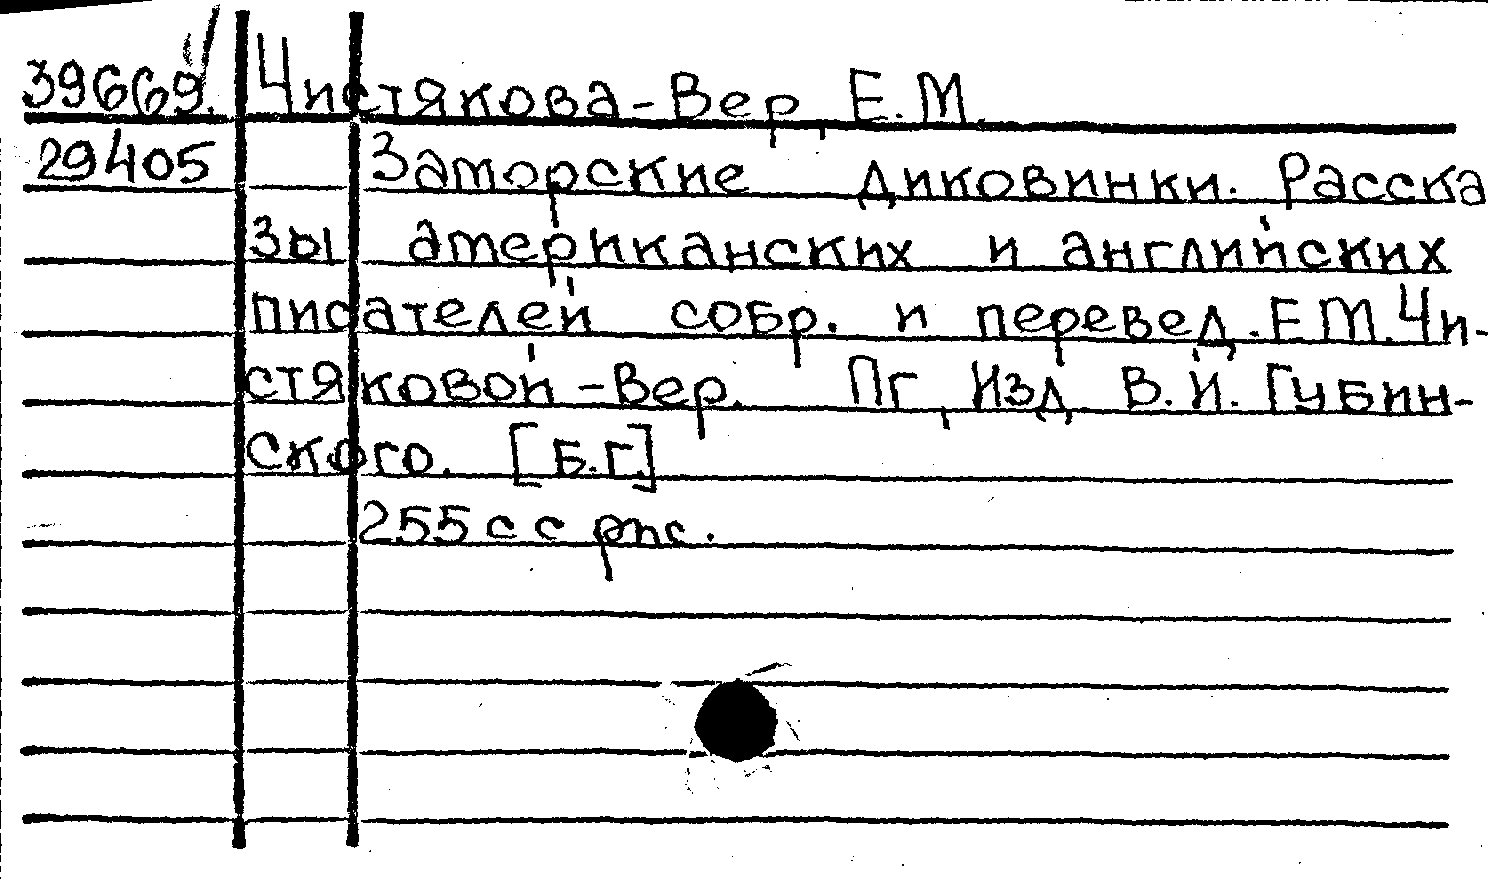 39669. Чистякова-Вер, Е.М.
29405 Заморские диковинки. Расска
зы американских и английских
писателей собр. и перевед. Е.М. Чи-
стяковой-Вер. Пг, Изд. В.И. Губин-
ского. [Б.Г.]
255 с с рис.